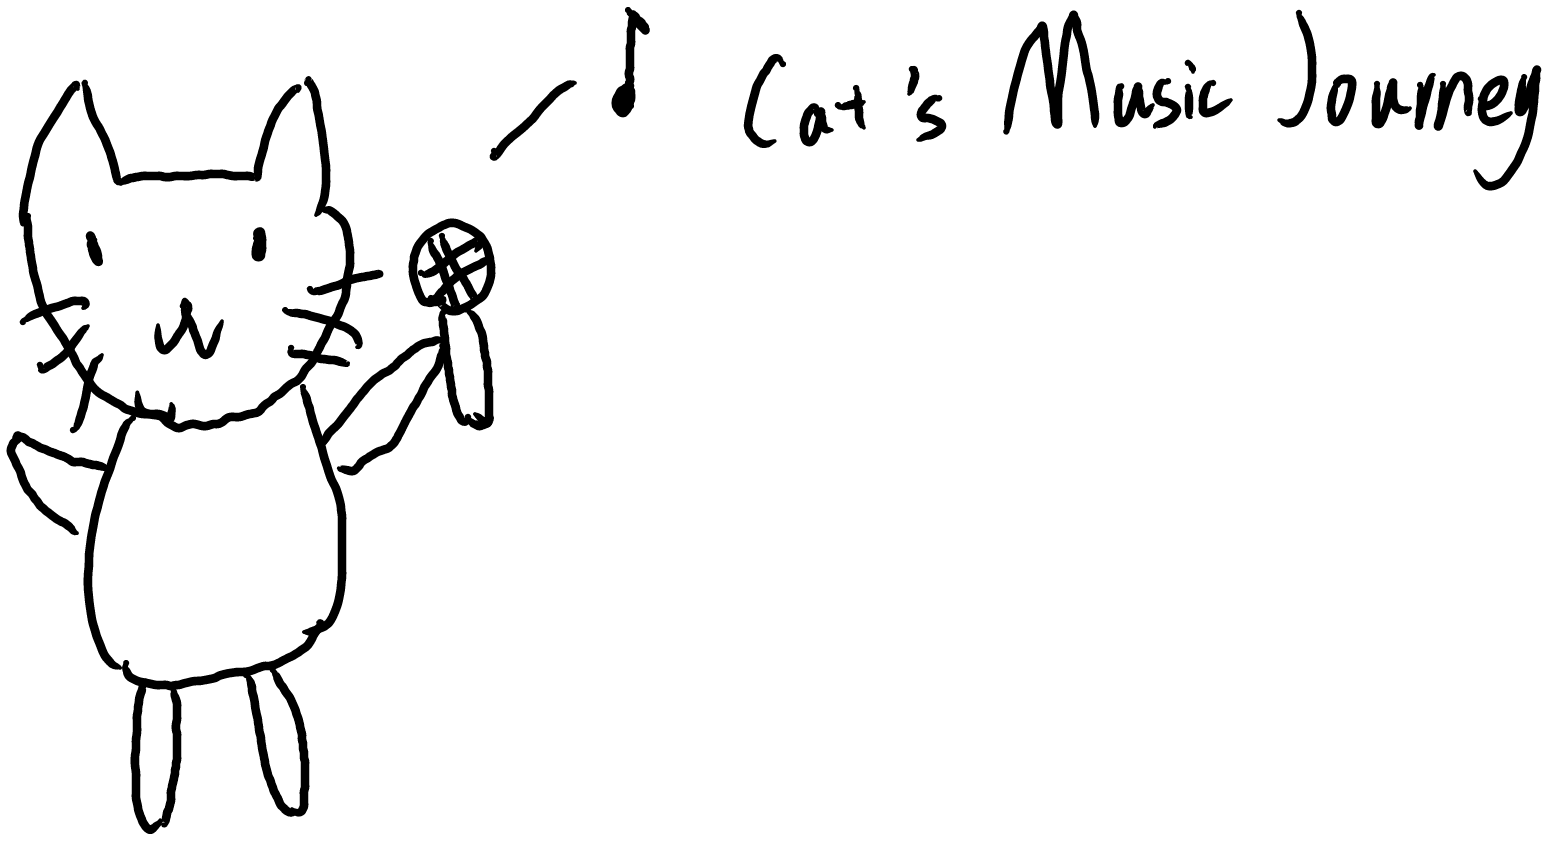 Cat's Music Journey